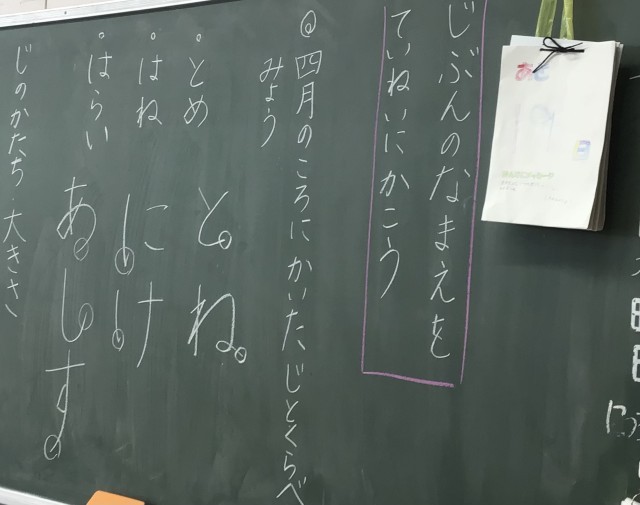 じぶんのなまえを
ていねいにかこう
◎四月のころにかいたじとくらべ
みよう
・とめ とね
・はね にけ
・はらい あしす
じのかたち・大きさ